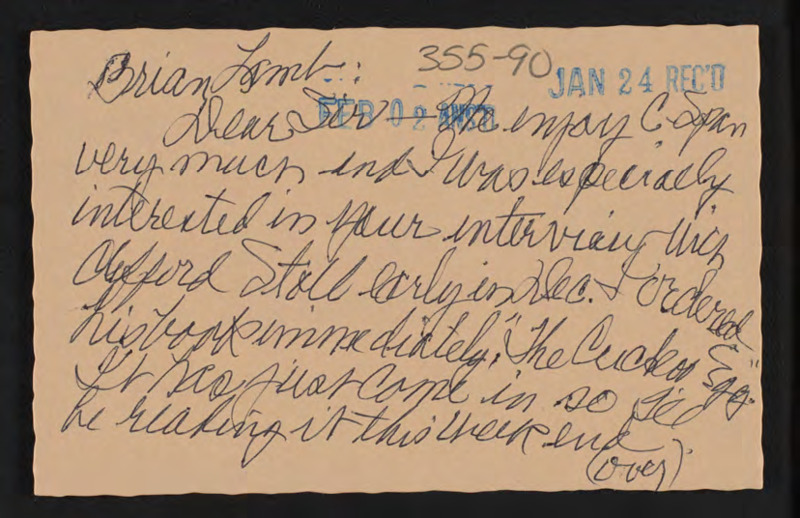 Brian Lamb: 355-90
JAN 24 REC'D
FEB 02 ANS'D
Dear Sir - We enjoy C-Span
very much and I was especially
interested in your interview with
Clifford Stoll early in Dec. I ordered
his book immediately, "The Cuckoo Egg."
It has just come in so I'll
be reading it this week end
(over)